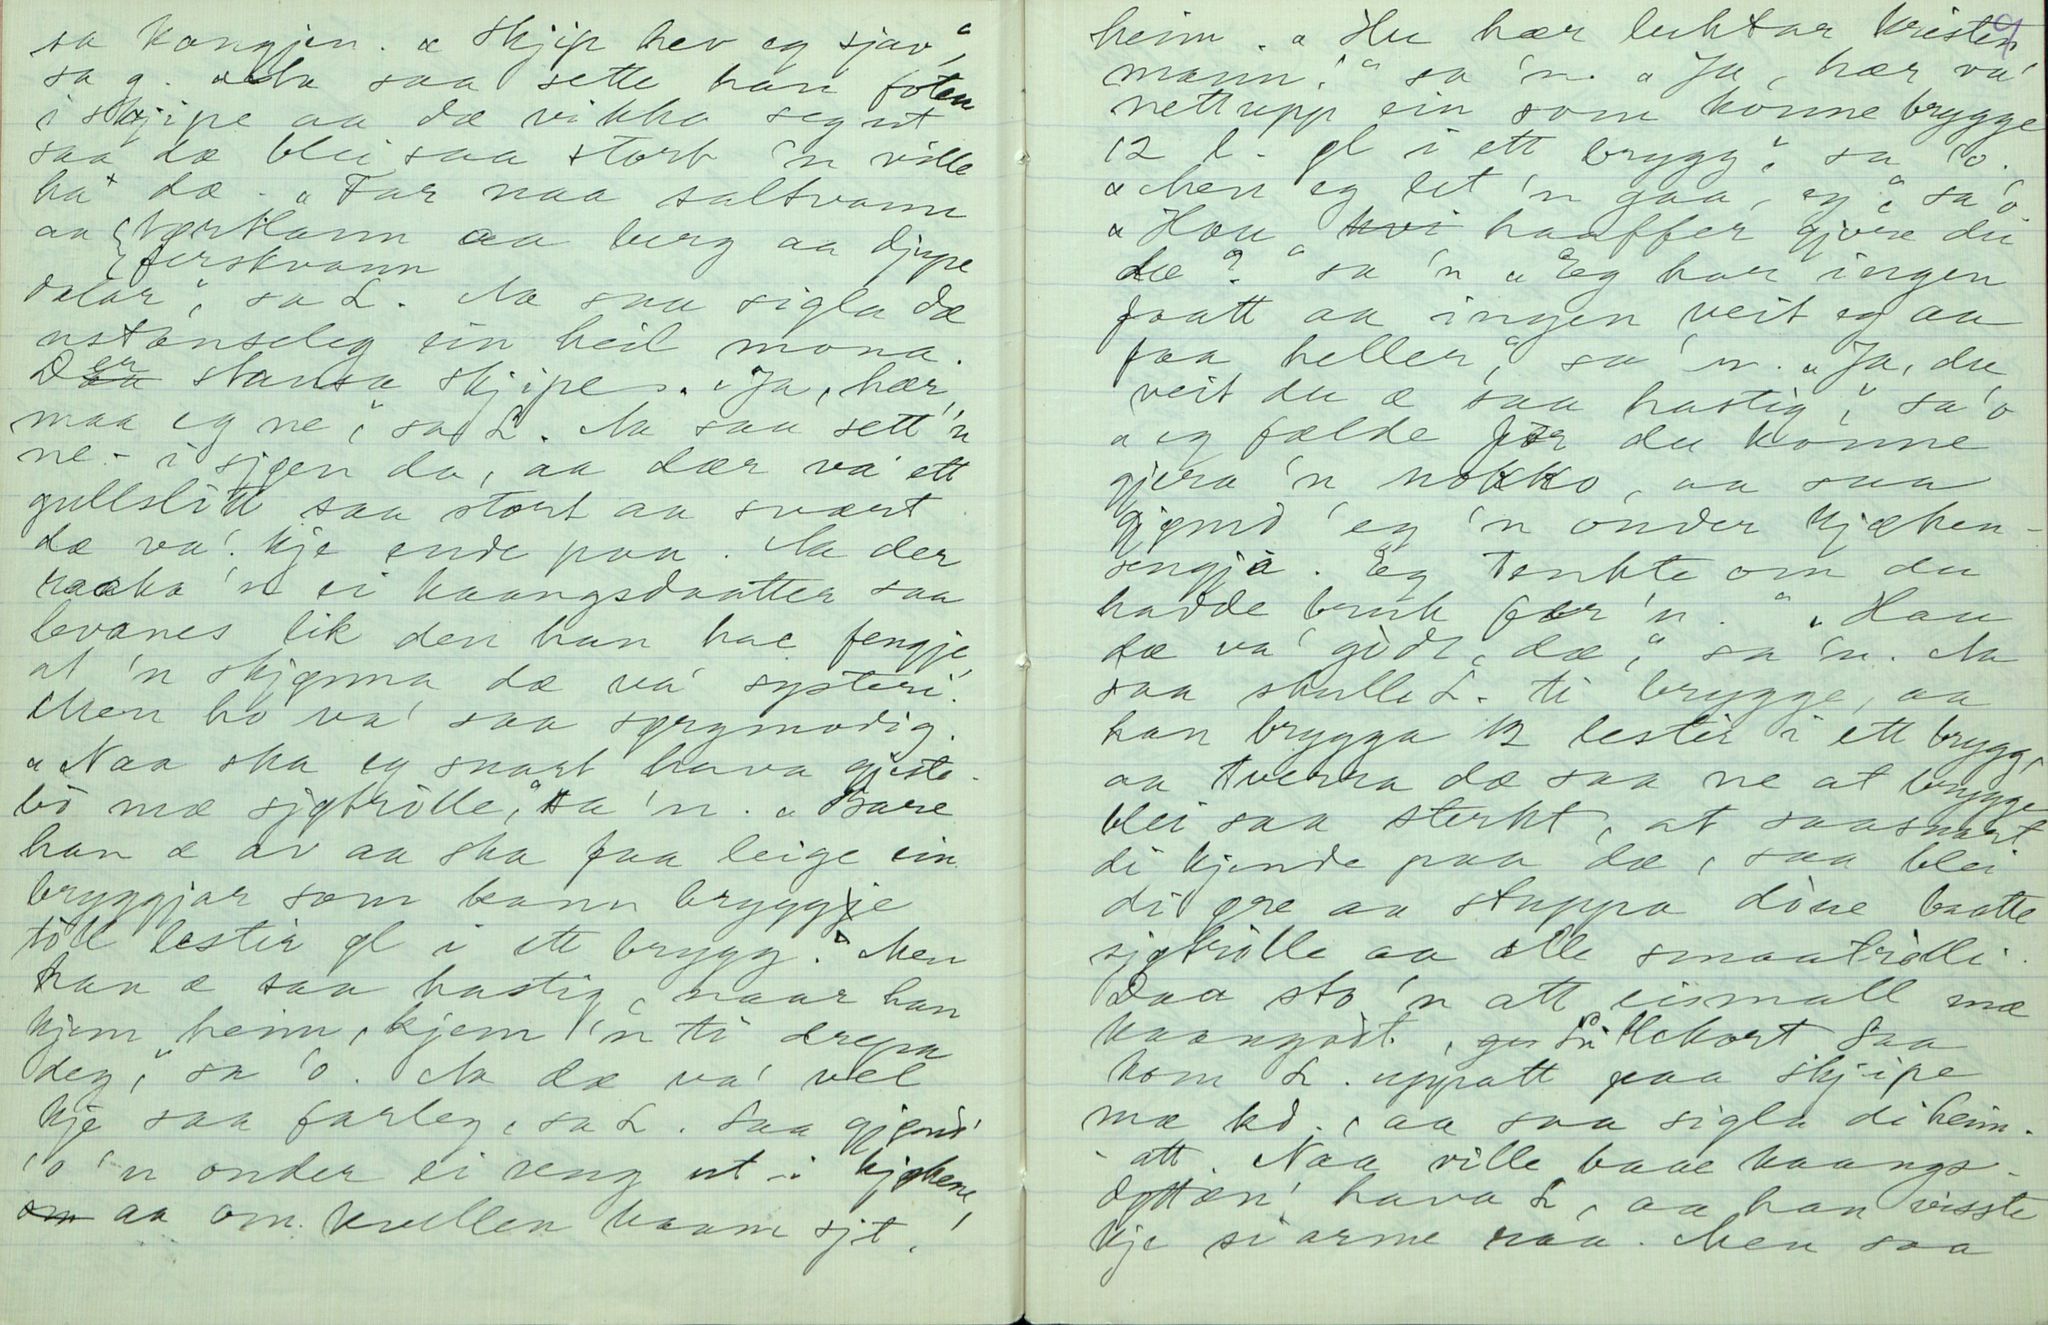 sa kongjen. „Skjip hev eg sjøv,"
sa g. Aa saa sette han foten
i skjipe aa dæ vikka seg ut
saa dæ blei saa stort 'n ville
ha' dæ. „Far naa saltvann
aa værkann aa berg aa djupe
ferskvann
dalar", sa L. Aa saa sigla dæ
ustanseleg ein heil mona.
Der stansa skjipe. „Ja, hær
maa eg ne," sa L. Aa saa sett 'n
ne i sjøen da, aa dær va' ett
gullslått saa stort aa svært
dæ va' kje ende paa. Aa der
raaka 'n ei kaangsdaatter saa
levanes lik den han hae fengje,
at 'n skjønna dæ va' systeri.
Men ho va' saa sørgmodig.
„Naa ska eg snart hava gjeste-
bö mæ sjøtrölle," sa 'n. „Bare
han æ av aa ska faa leige ein
bryggjar som kann bryggje
töll lestir øl i ett brygg." Men
han æ saa hastig, naar han
kjem heim, kjem 'n ti drepa
deg," sa 'o. Aa dæ va' vel
kje saa farleg, sa L. Saa gjømd'
'o 'n onder ei seng ut i kjøkene,
aa om kvellen kaam sjt.
heim. „Hu hær luktar kristen
mann!" sa 'n. „Ja, hær va'
nettupp ein som könne brygge
12 l. øl i ett brygg", sa 'o.
„Men eg let 'n gaa, eg," sa 'o.
„Hau haaffer gjore du
dæ?" sa 'n „Eg har ingen
faatt aa ingen veit eg aa
faa heller," sa 'n. „Ja, du
veit du æ saa hastig", sa 'o
„eg fælde før du könne
gjera 'n nokko, aa saa
gjømd' eg 'n onder kjøken-
sengjà. Eg tenkte om du
hadde bruk før 'n." „Hau
dæ va' gödt, dæ," sa 'n. Aa
saa skulle L. ti brygge, aa
han brygga 12 lestir i ett brygg,
aa tverra dæ saa ne at brygge
blei saa sterkt, at saasnart
di kjende paa dæ, saa blei
di øre aa stuppa döue baatte
sjøtrölle aa alle smaatrölli.
Daa sto 'n att eismall mæ
kaangsdt. Saa
kom L. uppatt paa skjipe
mæ kd., aa saa sigla di heim-
att. Naa ville baae kaangs-
døttæn' hava L, aa han visste
kje si arme raa. Men saa